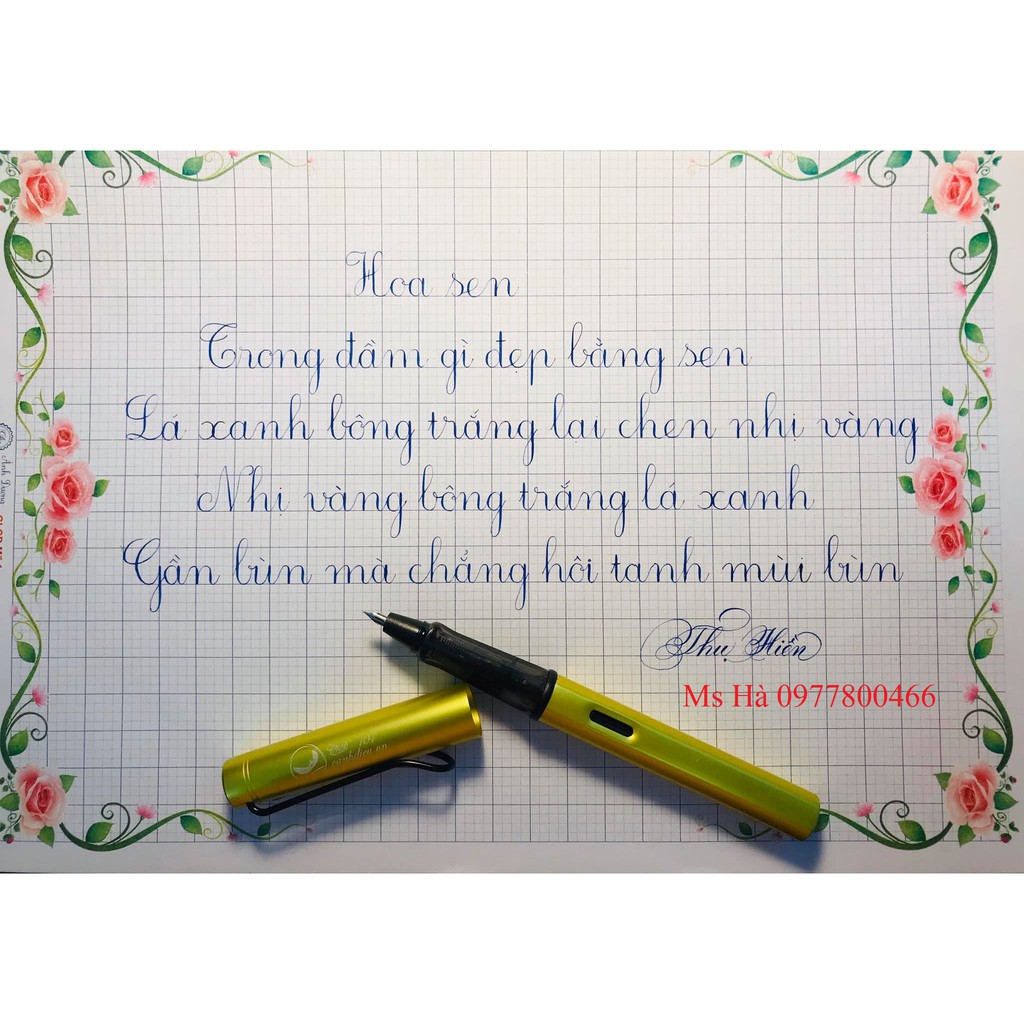 Hoa sen
Trong đầm gì đẹp bằng sen
Lá xanh bông trắng lại chen nhị vàng
Nhị vàng bông trắng lá xanh
Gần bùn mà chẳng hôi tanh mùi bùn
Thu Hiền
Ms Hà 0977800466
Ánh Dương